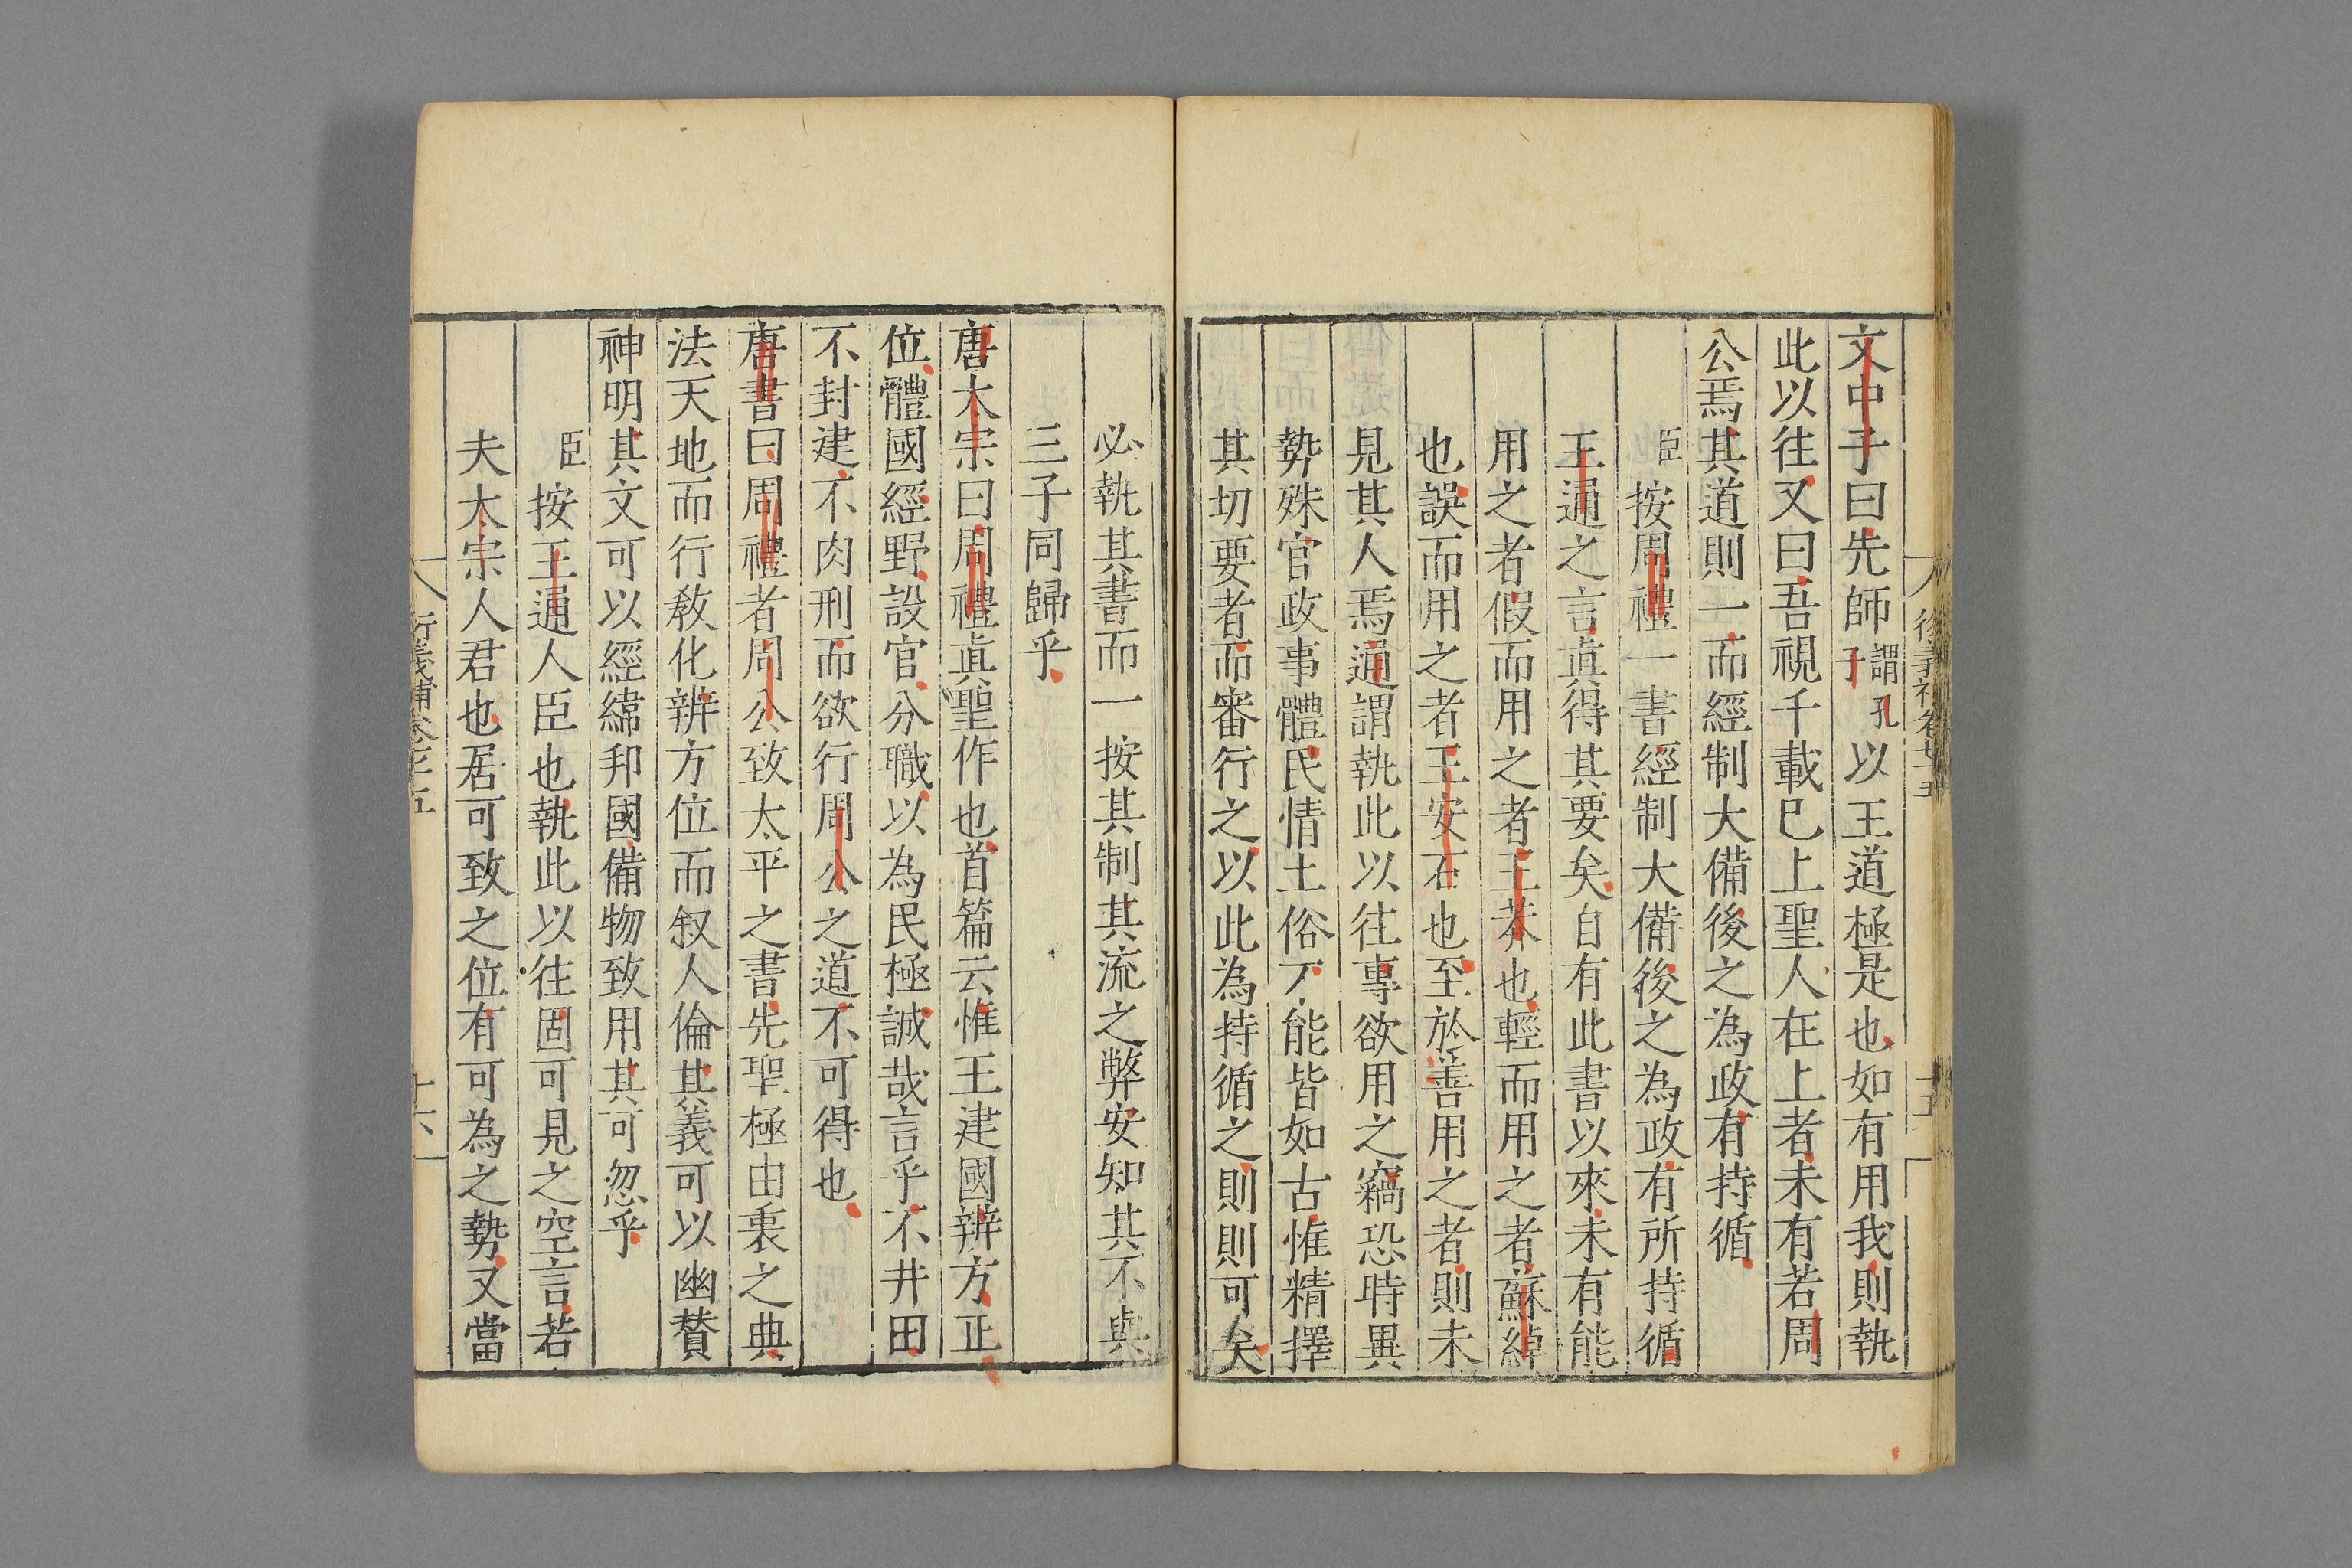 文中子曰先師謂孔子以王道極是也如有用我則執
此以往又曰吾視千載已上聖人在上者未有若周
公焉其道則一而經制大備後之為政有持循
臣按周禮一書經制大備後之為政有所持循
王通之言真得其要矣自有此書以來未有能
用之者假而用之者王莽也輕而用之者蘇綽
也誤而用之者王安石也至於善用之者則未
見其人焉通謂執此以往專欲用之竊恐時異
勢殊官政事體民情土俗不能皆如古惟精擇
其切要者而審行之以此為持循之則則可矣
必執其書而一按其制其流之弊安知其不與
三子同歸乎
唐太宗曰周禮真聖作也首篇云惟王建國辨方正
位體國經野設官分職以為民極誠哉言乎不井田
不封建不肉刑而欲行周公之道不可得也
唐書曰周禮者周公致太平之書先聖極由衷之典
法天地而行教化辨方位而叙人倫其義可以幽贊
神明其文可以經緯邦國備物致用其可忽乎
臣按王通人臣也執此以往固可見之空言若
夫太宗人君也居可致之位有可為之勢又當
十六